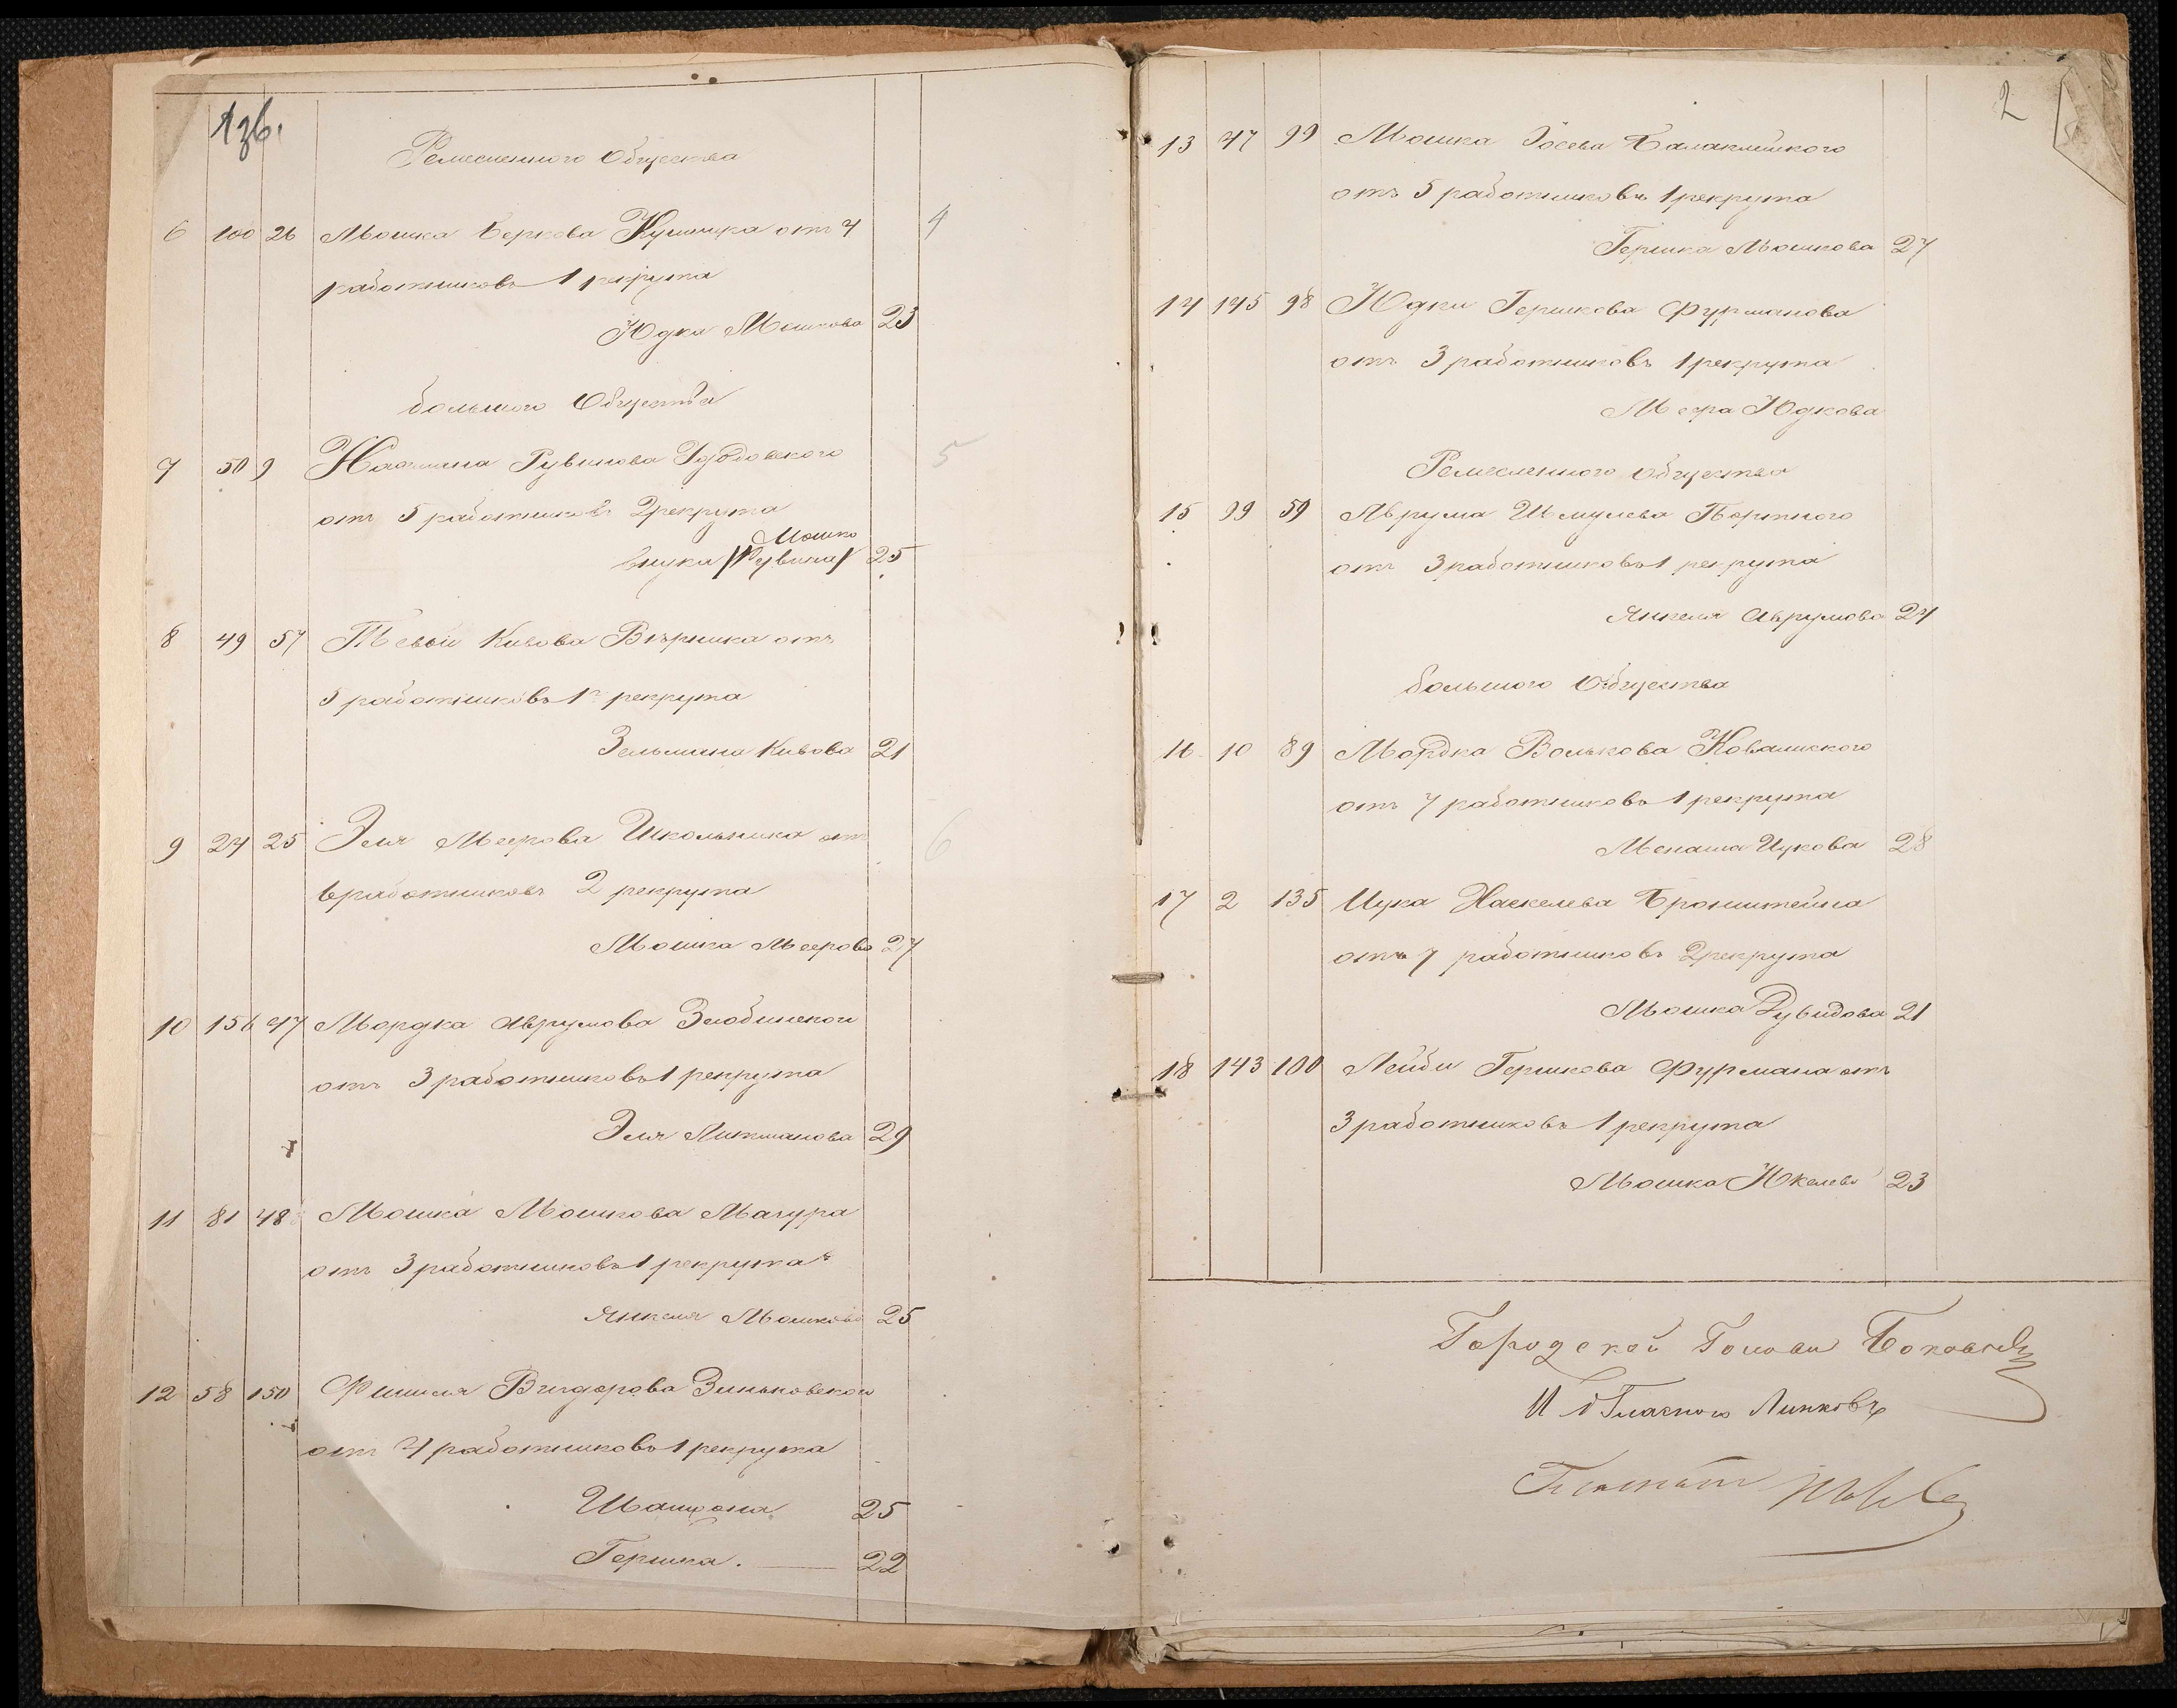 1зв.
Ремесленного Общества
6 100 26 Мошка Беркова Кушнира отъ 4 4
работниковъ 1 рекрута
Юдка Мошкова 23
большого Общества
7 50 9 Нахмана Рувинова Бродовского 5
отъ 5 работниковъ 2 рекрута
Мошко
внука /Рувина/ 25
8 49 57 Тевьи Кивова Вѣрника отъ
3 работниковъ 1 рекрута
Зельмана Кивова 21
9 24 25 Эля Меерова Школьника отъ 6
6 работниковъ 2 рекрута
Мошка Меерова 27
10 156 47 Мордка Аврумова Злобинского
отъ 3 работниковъ 1 рекрута
Эля Литманова 29
11 81 48 Мошка Мошкова Мачура
отъ 3 работниковъ 1 рекрута
Янкеля Мошкова 25
12 58 150 Фишеля Вигдорова Зиньковского
отъ 4 работниковъ 1 рекрута
25
Гершка. 22
2
13 47 99 Мошка Іосева Балаклейского
отъ 5 работниковъ 1 рекрута
Гершка Мошкова 27
14 145 98 Юдки Гершкова Фурманова
отъ 3 работниковъ 1 рекрута
Меера Юдкова
Ремесленного Общества
15 99 59 Аврума Шмулева Портного
отъ 3 работниковъ 1 рекрута
Янкеля Аврумова 24
большого Общества
16 10 89 Мордка Волькова Ковалиского
отъ 7 работниковъ 1 рекрута
Менаша Ицкова 28
17 2 135 Ицка Хаскелева Бронштейна
отъ 7 работниковъ 2 рекрута
Мошка Дувидова 21
18 143 100 Лейби Гершкова Фурмана отъ
3 работниковъ 1 рекрута
Мошка Юкелева 23
Городской Голова
И д Гласного Липковъ